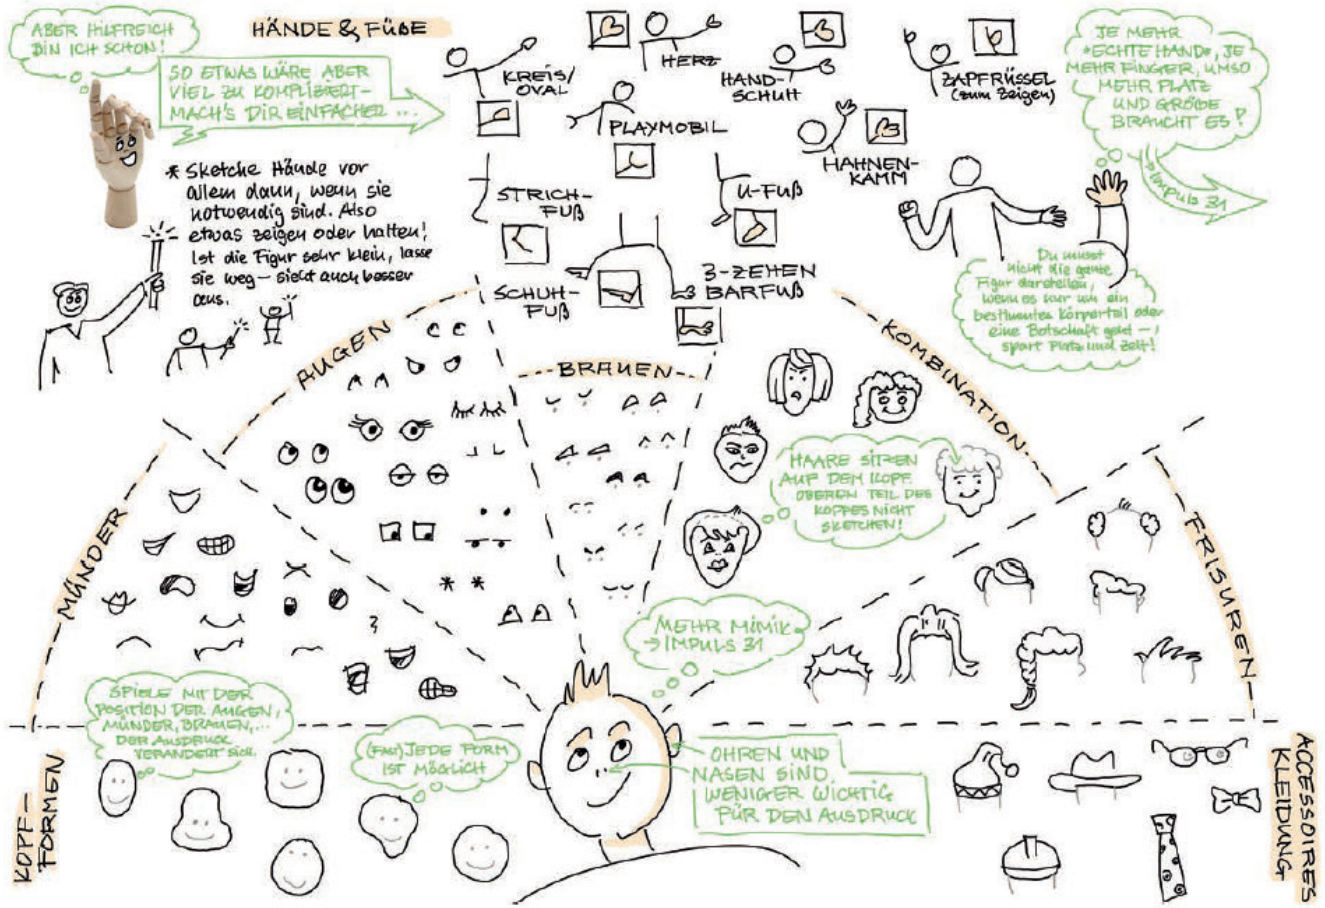 ABER HILFREICH
BIN ICH SCHON!
HÄNDE & FÜßE
SO ETWAS WÄRE ABER
VIEL ZU KOMPLIZIERT –
MACH'S DIR EINFACHER ...
* Sketche Hände vor
allem dann, wenn sie
notwendig sind. Also
etwas zeigen oder halten!
Ist die Figur sehr klein, lasse
sie weg – sieht auch besser
aus.
KREIS/
OVAL
HERZ
HAND-
SCHUH
ZAPFRÜSSEL
(zum Zeigen)
PLAYMOBIL
HAHNEN-
KAMM
STRICH-
FUß
U-FUß
SCHUH-
FUß
3-ZEHEN
BARFUß
JE MEHR
"ECHTE HAND", JE
MEHR FINGER, UMSO
MEHR PLATZ
UND GRÖßE
BRAUCHT ES!
→ IMPULS 31
Du musst
nicht die ganze
Figur darstellen,
wenn es nur um ein
bestimmtes Körperteil oder
eine Botschaft geht –
spart Platz und Zeit!
AUGEN
BRAUEN
KOMBINATION
HAARE SITZEN
AUF DEM KOPF.
OBEREN TEIL DES
KOPFES NICHT
SKETCHEN!
MÜNDER
FRISUREN
MEHR MIMIK
→ IMPULS 31
SPIELE MIT DER
POSITION DER AUGEN,
MÜNDER, BRAUEN, ...
DER AUSDRUCK
VERÄNDERT SICH.
(FAST) JEDE FORM
IST MÖGLICH
OHREN UND
NASEN SIND
WENIGER WICHTIG
FÜR DEN AUSDRUCK
KOPF-
FORMEN
ACCESSOIRES
KLEIDUNG